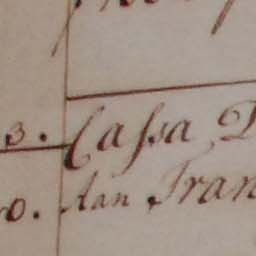 3. Cassa
0. Aan Fran